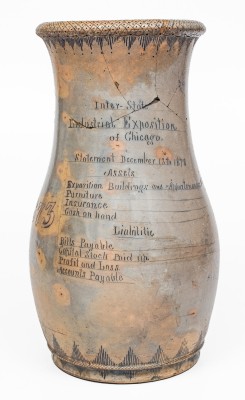 Inter-State
Industrial Exposition
of Chicago.
Statement December 13th 1873
Assets
Exposition Buildings and
Furniture
Insurance
Cash on hand
Liabilitie
Bills Payable
Capital Stock Paid up
Profit and Loss
Accounts Payable